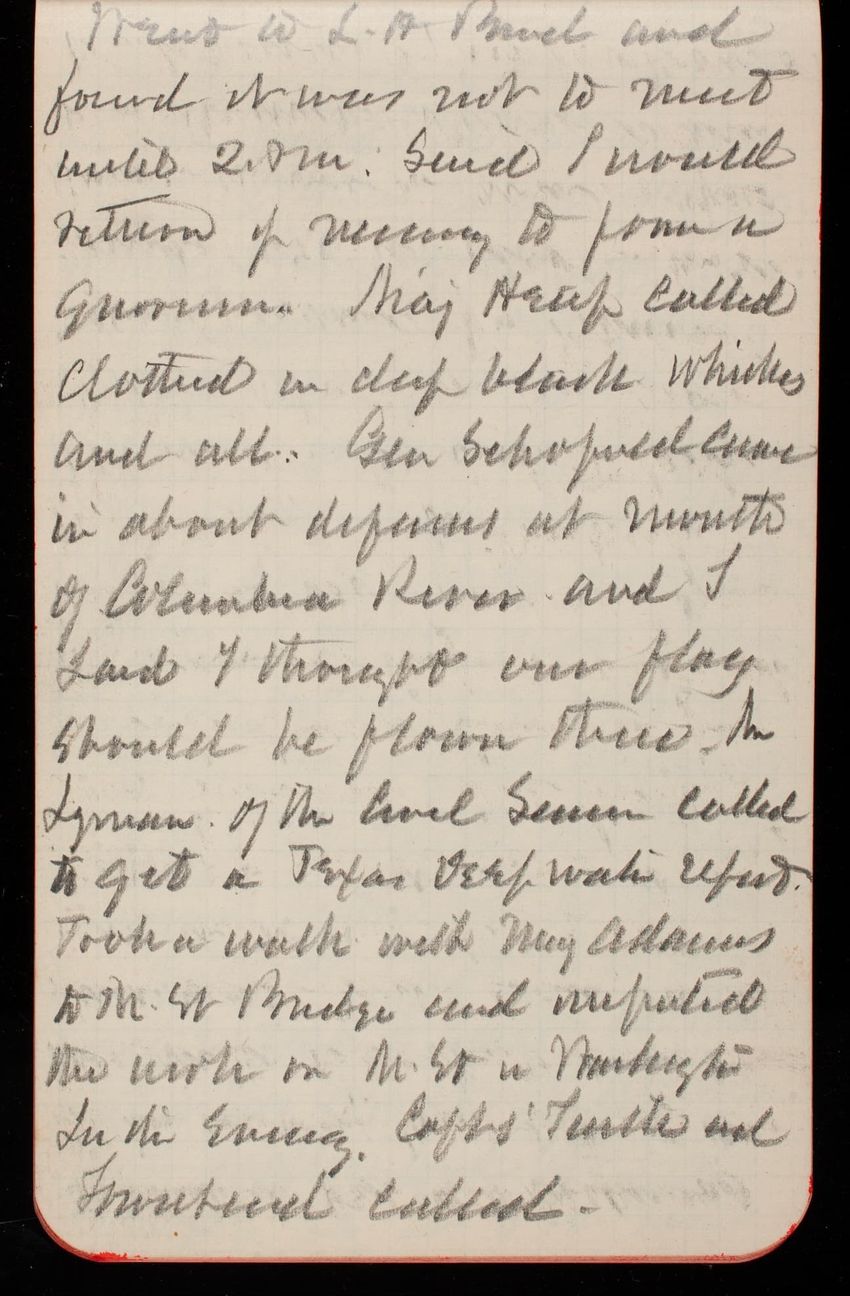 Went to L. H Board and
found it was not to meet
until 2. P m. Said I would
return if necessary to form a
Quorum. Maj Heap called
Clothed in deep black whiskers
and all. Gen Schofield came
in about defenses at mouth
of Columbia River and I
said I thought our flag
should be flown there. Mr
Lyman of the Civil Service called
to get a Texas Deep water report.
Took a walk with Maj Adams
to M. St Bridge and inspected
the work on M. St in Washington
In the Evening, Capts' Turtle and
Townsend called.